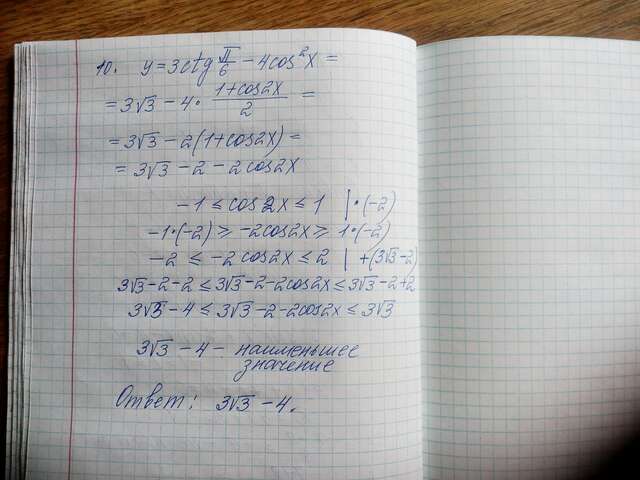 10. y = 3ctg π/6 - 4cos²x =
= 3√3 - 4 · (1+cos2x)/2 =
= 3√3 - 2(1+cos2x) =
= 3√3 - 2 - 2cos2x
-1 ≤ cos2x ≤ 1 | ·(-2)
-1·(-2) ≥ -2cos2x ≥ 1·(-2)
-2 ≤ -2cos2x ≤ 2 | +(3√3-2)
3√3-2-2 ≤ 3√3-2-2cos2x ≤ 3√3-2+2
3√3-4 ≤ 3√3-2-2cos2x ≤ 3√3
3√3 - 4 - наименьшее
значение
Ответ: 3√3 - 4.